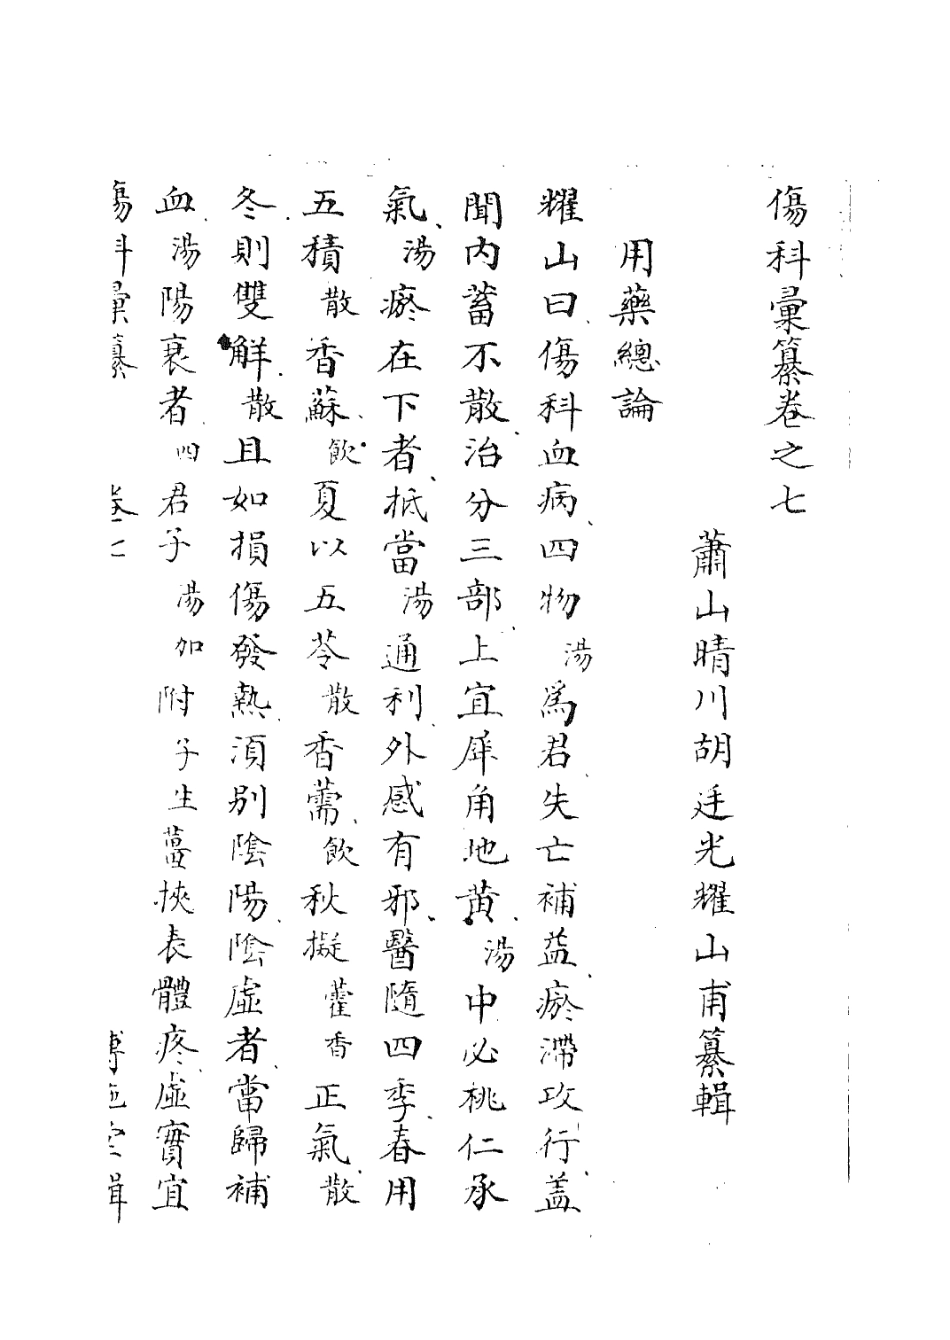 傷科彙纂卷之七
蕭山晴川胡廷光耀山甫纂輯
用藥總論
耀山曰傷科血病四物湯爲君失亡補益瘀滯攻行盖
聞內蓄不散治分三部上宜犀角地黃湯中必桃仁承
氣湯瘀在下者抵當湯通利外感有邪醫隨四季春用
五積散香蘇飲夏以五苓散香薷飲秋擬藿香正氣散
冬則雙解散且如損傷發熱須別陰陽陰虛者當歸補
血湯陽衰者四君子湯加附子生薑挾表體疼虛實宜
傷科彙纂 卷七